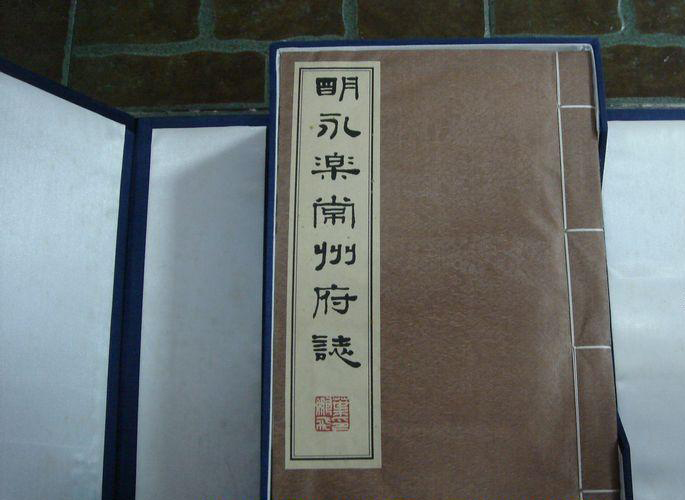 明永楽常州府誌